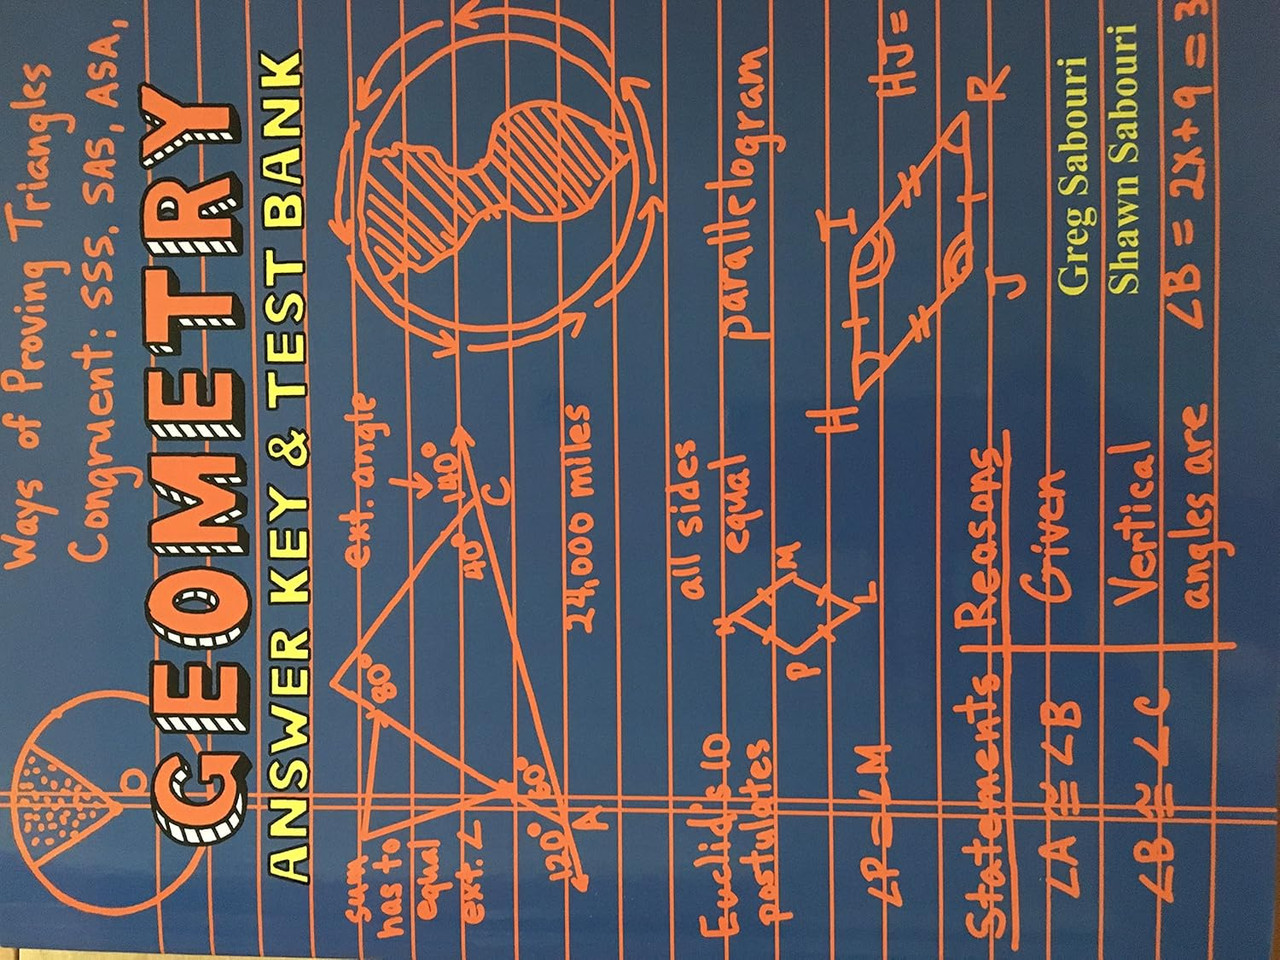 Ways of Proving Triangles
Congruent: SSS, SAS, ASA,
O
GEOMETRY
ANSWER KEY & TEST BANK
sum
has to
equal
ext. ∠
ext. angle
80°
140°
40°
C
60°
120°
A
24,000 miles
Euclid's 10
postulates
all sides
equal
parallelogram
N
M
P
L
∠P = ∠M
H
I
HJ =
J
R
Statements
Reasons
∠A ≅ ∠B
Given
∠B ≅ ∠C
Vertical
angles are
Greg Sabouri
Shawn Sabouri
∠B = 2x+9 = 3